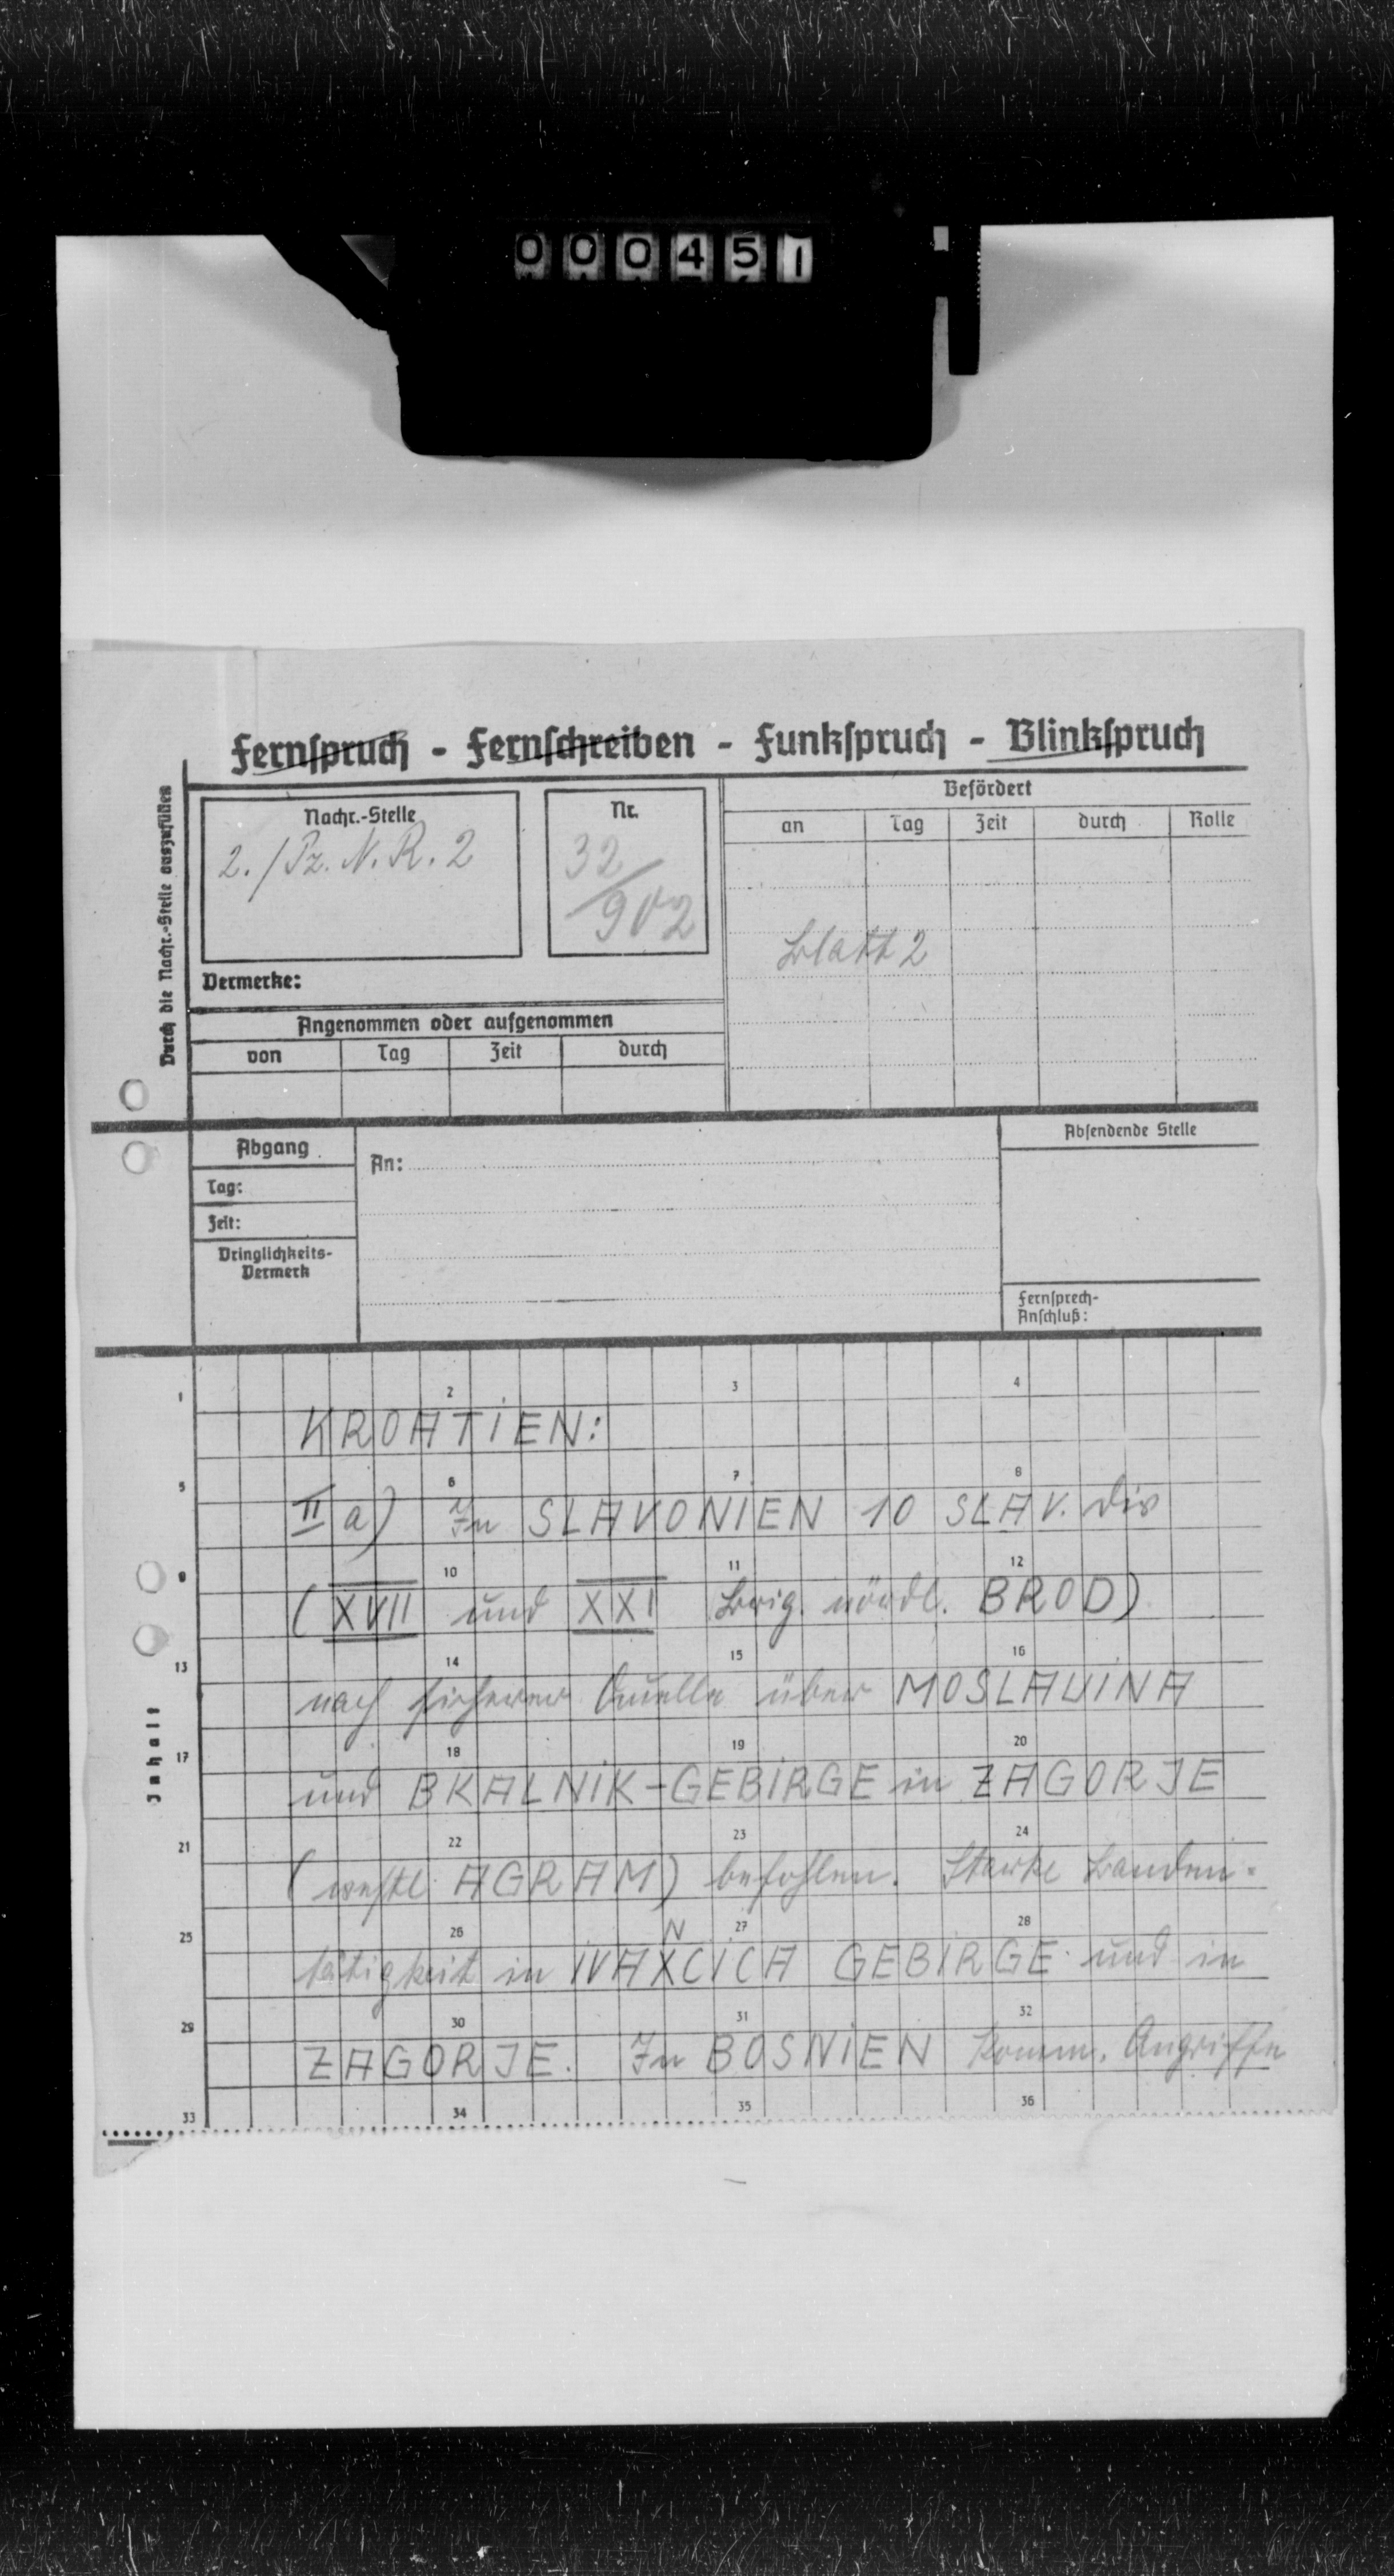 000451
Fernspruch - Fernschreiben - Funkspruch - Blinkspruch
Durch die Nachr.-Stelle auszufüllen
Nachr.-Stelle
2./Pz. N. R. 2
Nr.
32/902
Befördert
an Tag Zeit durch Rolle
Blatt 2
Vermerke:
Angenommen oder aufgenommen
von Tag Zeit durch
Abgang
Tag:
Zeit:
Dringlichkeits-
Vermerk
An:
Absendende Stelle
Fernsprech-
Anschluß:
Inhalt
1 2 3 4
KROATIEN:
5 6 7 8
II a) In SLAVONIEN 10 SLAV. Div
9 10 11 12
(XVII und XXI Brig. nördl. BROD)
13 14 15 16
nach sicherer Quelle über MOSLAVINA
17 18 19 20
und BKALNIK-GEBIRGE in ZAGORJE
21 22 23 24
(westl. AGRAM) befohlen. Starke Banden-
25 26 27 28
N
tätigkeit in IVAXCICA GEBIRGE und in
29 30 31 32
ZAGORJE. In BOSNIEN komm. Angriffe
33 34 35 36